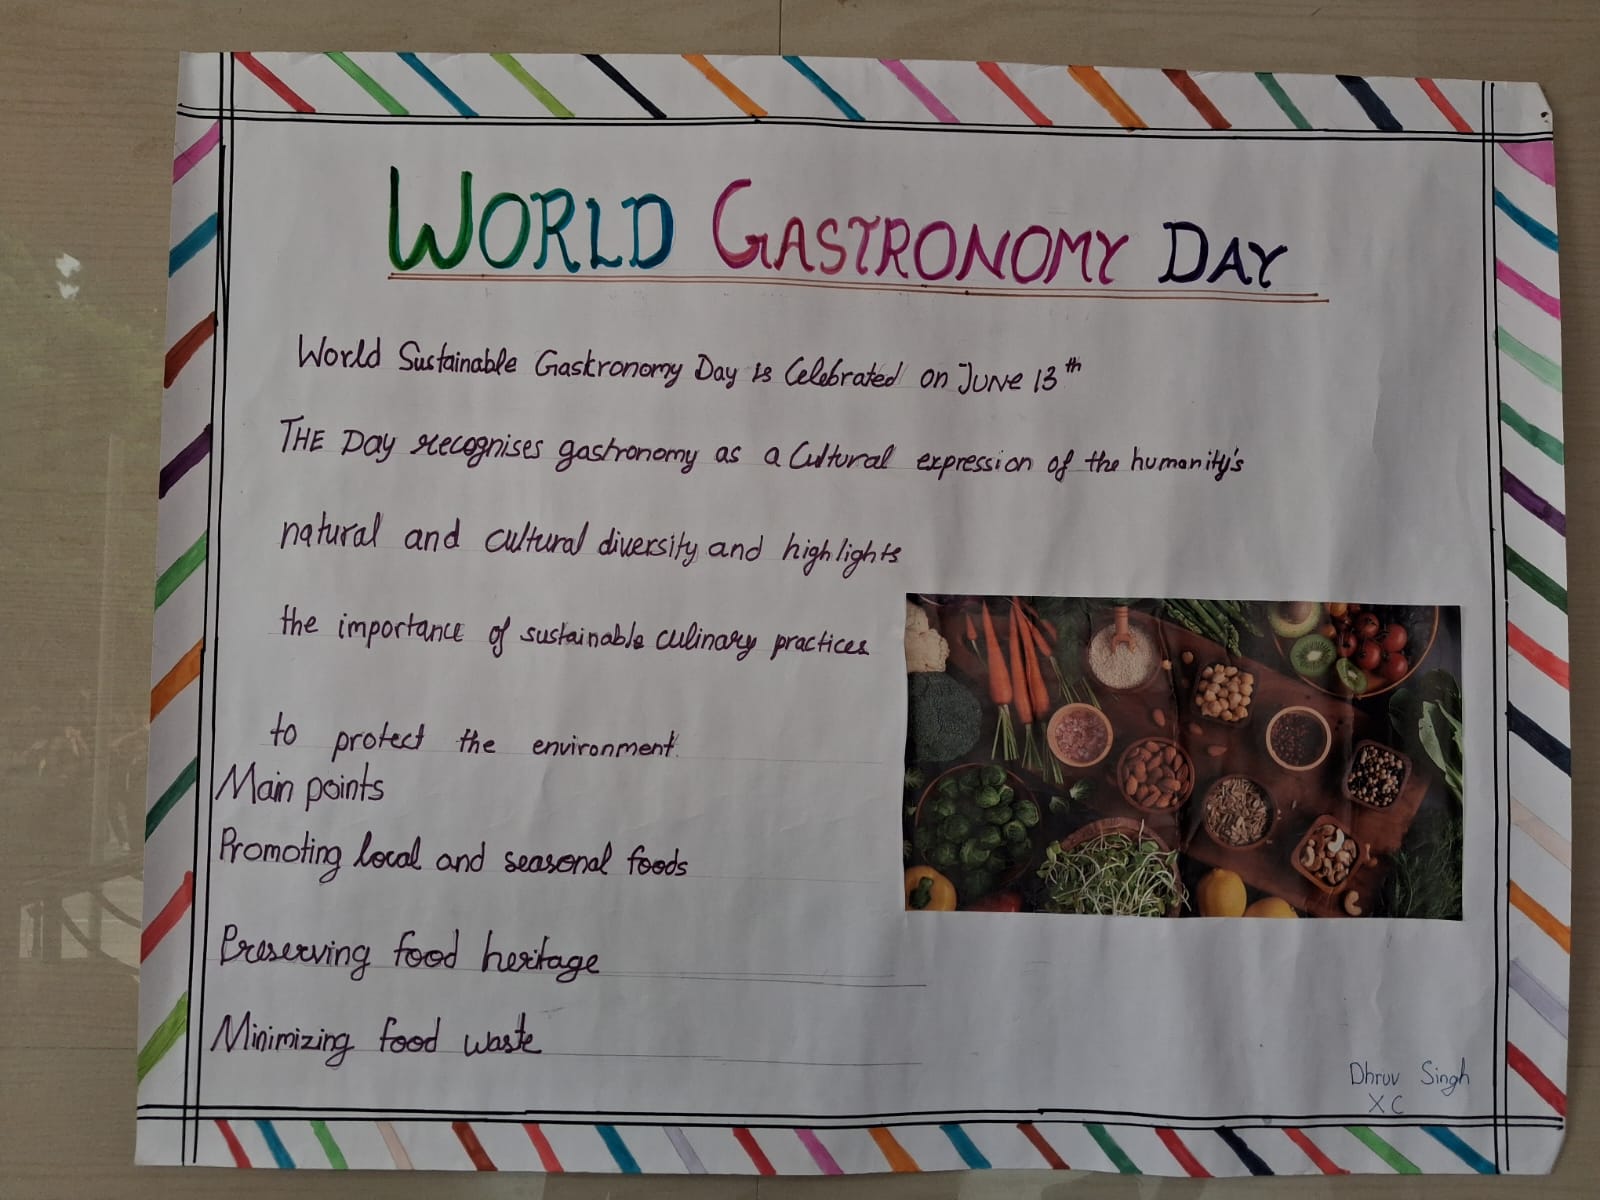 WORLD GASTRONOMY DAY
World Sustainable Gastronomy Day is Celebrated on JUNE 13th
THE Day recognises gastronomy as a Cultural expression of the humanity's
natural and cultural diversity and highlights
the importance of sustainable culinary practices
to protect the environment.
Main points
Promoting local and seasonal foods
Preserving food heritage
Minimizing food waste
Dhruv Singh
X C